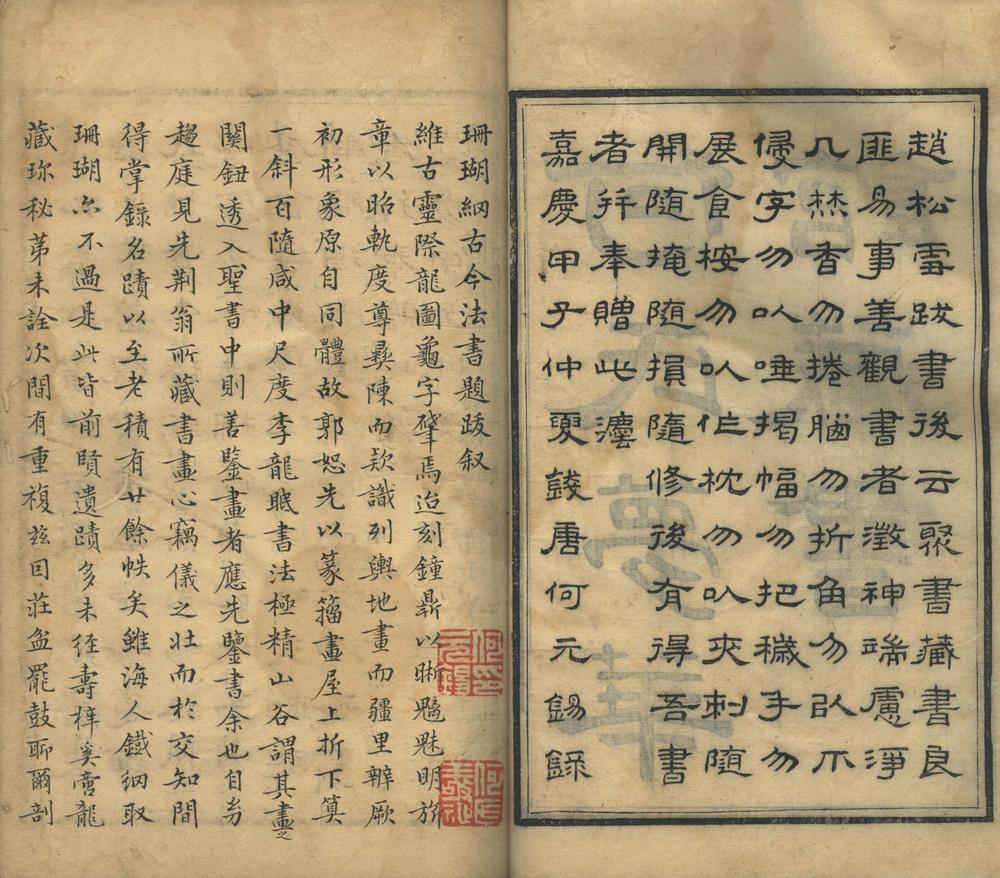 趙松雪跋書後云聚書藏書良
匪易事善觀書者澂神端慮淨
几焚香勿捲腦勿折角勿以爪
侵字勿以唾揭幅勿把穢手勿
展食桉勿以作枕勿以夾刺隨
開隨掩隨損隨修後有得吾書
者幷奉贈此灋
嘉慶甲子仲夏錢唐何元錫錄
珊瑚綱古今法書題跋叙
維古靈際龍圖龜字肇焉迨刻鐘鼎以晰魑魅明旂
章以昭軌度尊彝陳而欵識列輿地畫而疆里辨厥
初形象原自同體故郭恕先以篆籀畫屋上折下算
一斜百隨咸中尺度李龍眠書法極精山谷謂其畫之
關鈕透入聖書中則善鑒畫者應先鑒書余也自幼
趨庭見先荆翁所藏書畫心竊儀之壯而於交知間
得掌錄名蹟以至老積有廿餘帙矣雖海人鐵綱取
珊瑚亦不過是此皆前賢遺蹟多未經壽梓奚啻龍
藏珍秘苐未詮次間有重複茲因莊盆罷鼓聊爾剖
何印
元錫